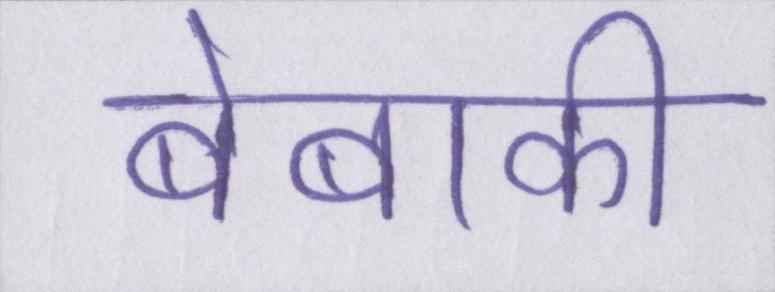 बेबाकी